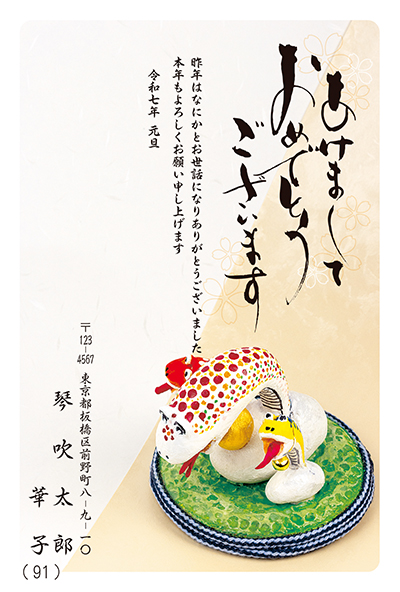 あけまして
おめでとう
ございます
昨年はなにかとお世話になりありがとうございました
本年もよろしくお願い申し上げます
令和七年 元旦
〒123-4567
東京都板橋区前野町八-九-一〇
琴吹太郎
華子
(91)